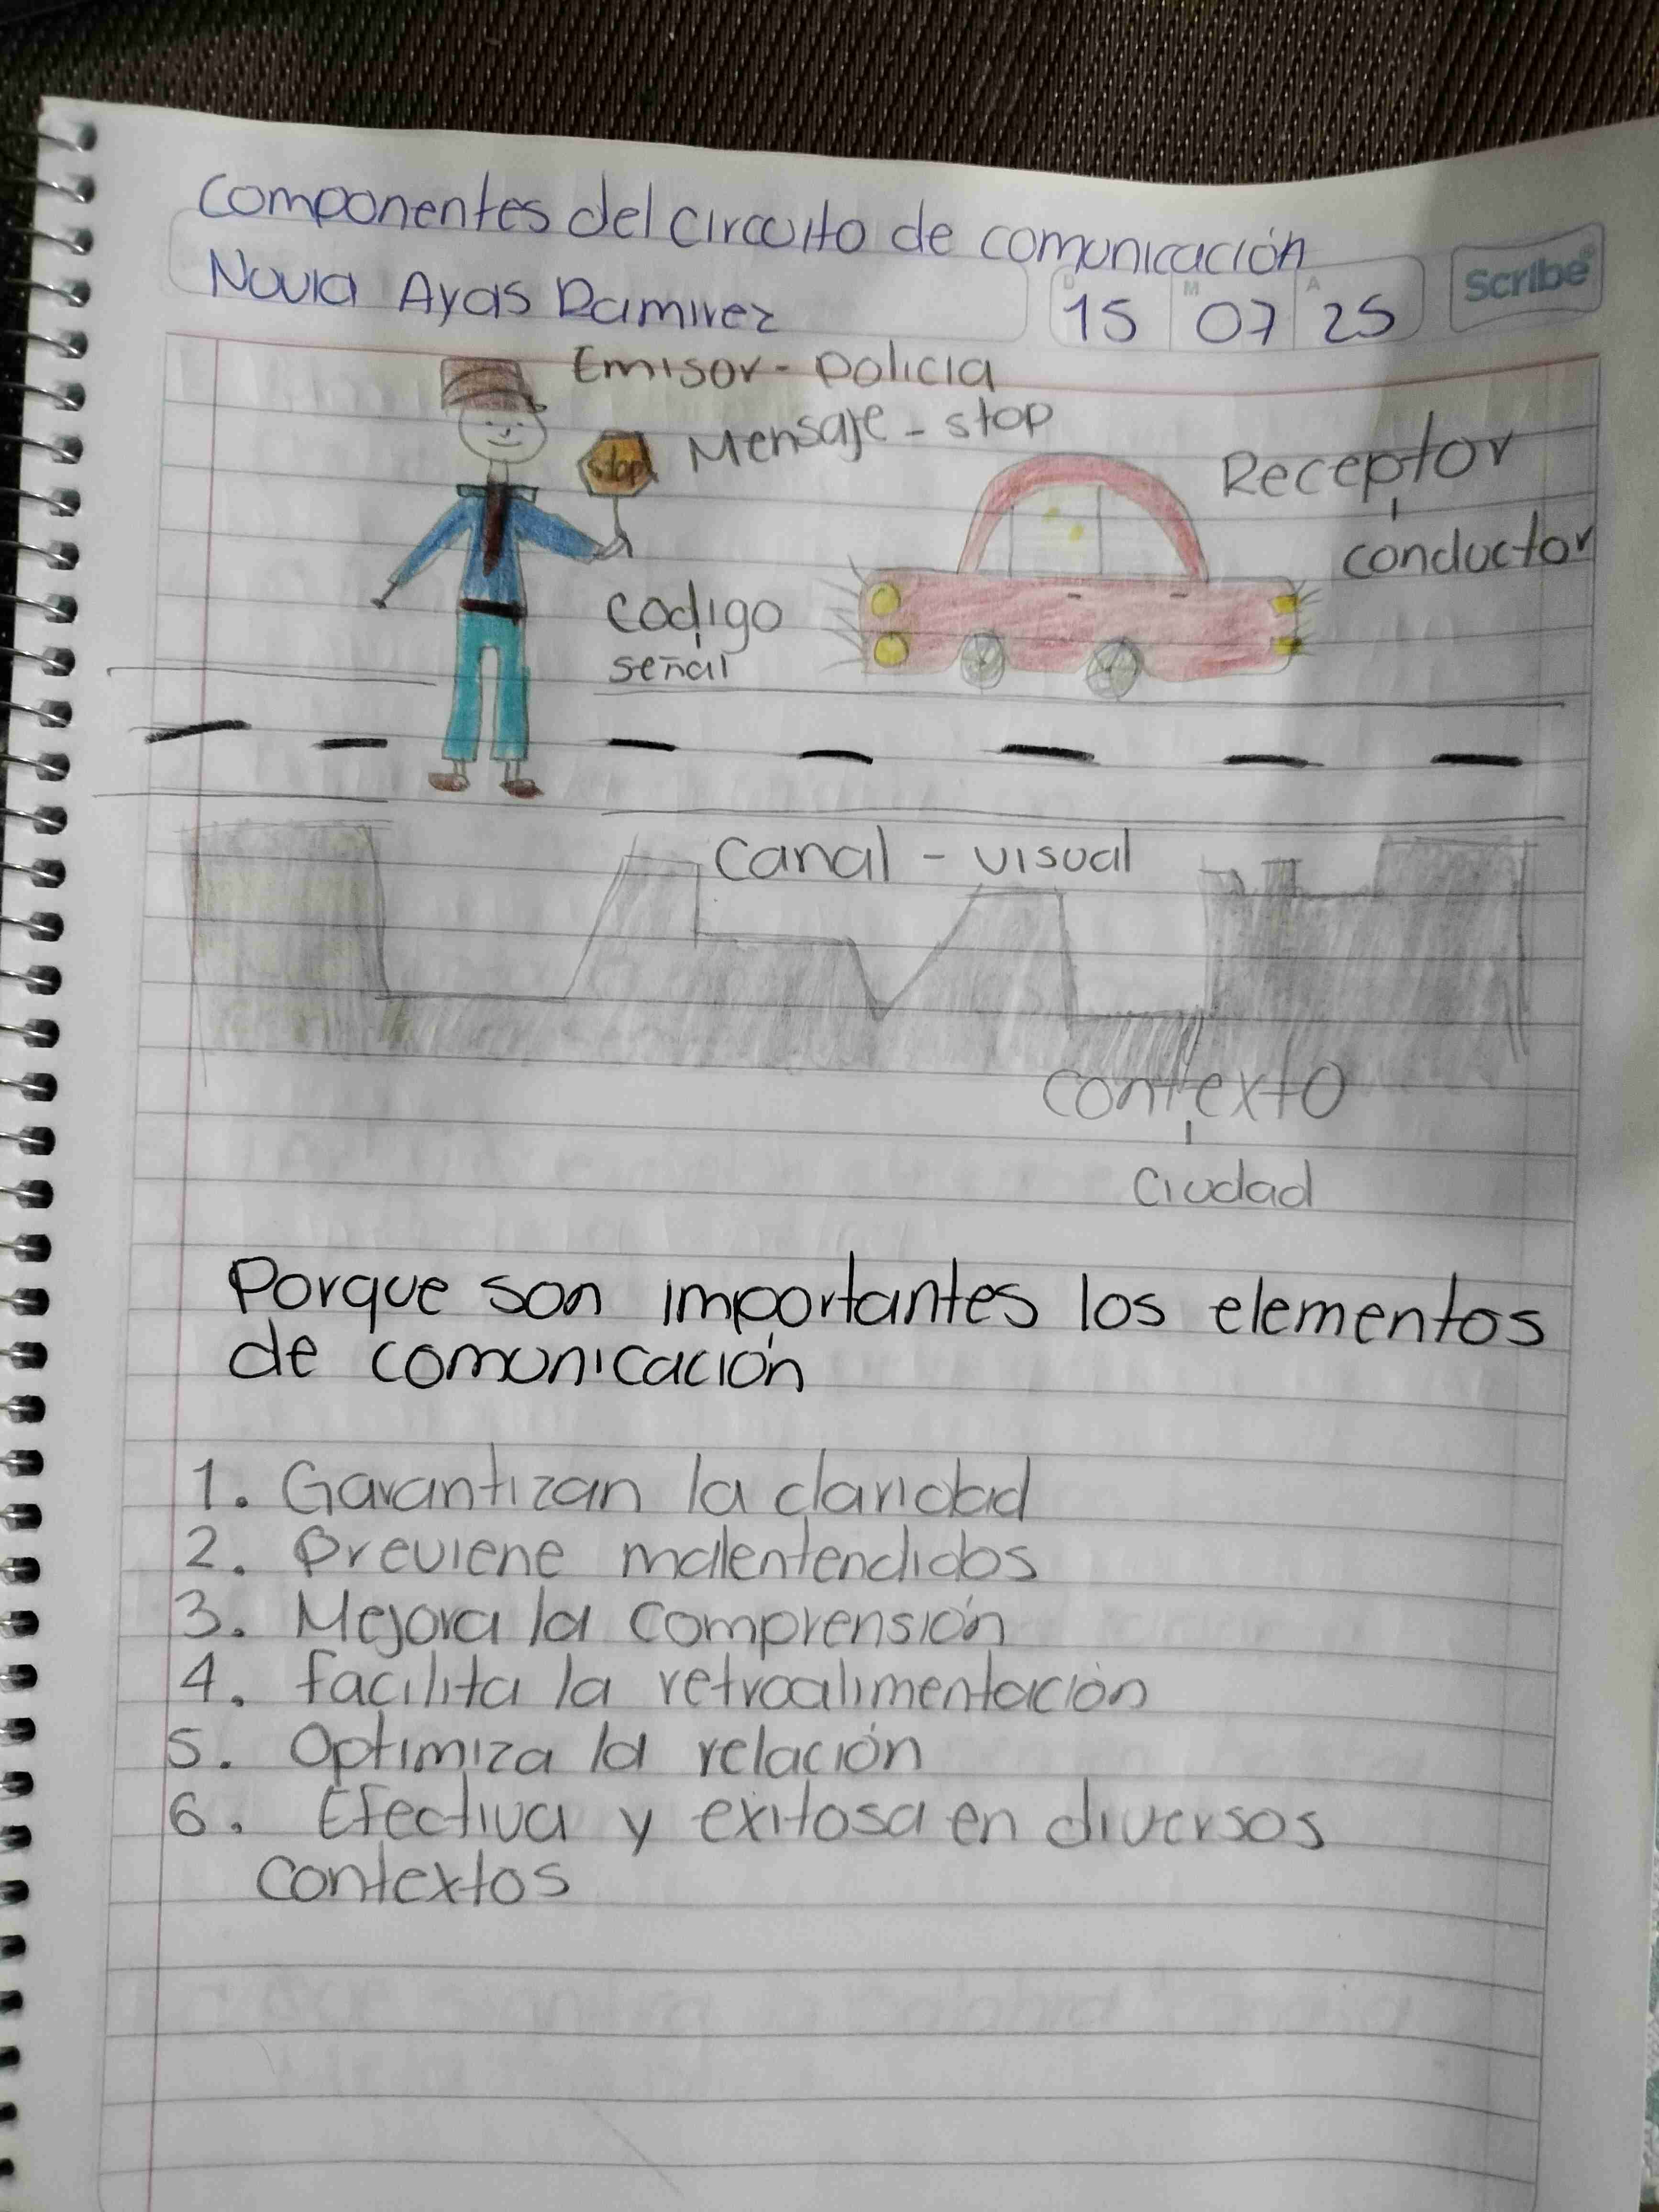 Componentes del circuito de comunicación
Scribe
Novia Ayas Ramirez
D M A
15 07 25
Emisor - policia
Mensaje - stop
stop
Receptor
conductor
Codigo
señal
Canal - visual
Contexto
Ciudad
Porque son importantes los elementos
de comunicación
1. Garantizan la claridad
2. Previene malentendidos
3. Mejora la comprensión
4. facilita la retroalimentación
5. Optimiza la relación
6. Efectiva y exitosa en diversos
contextos